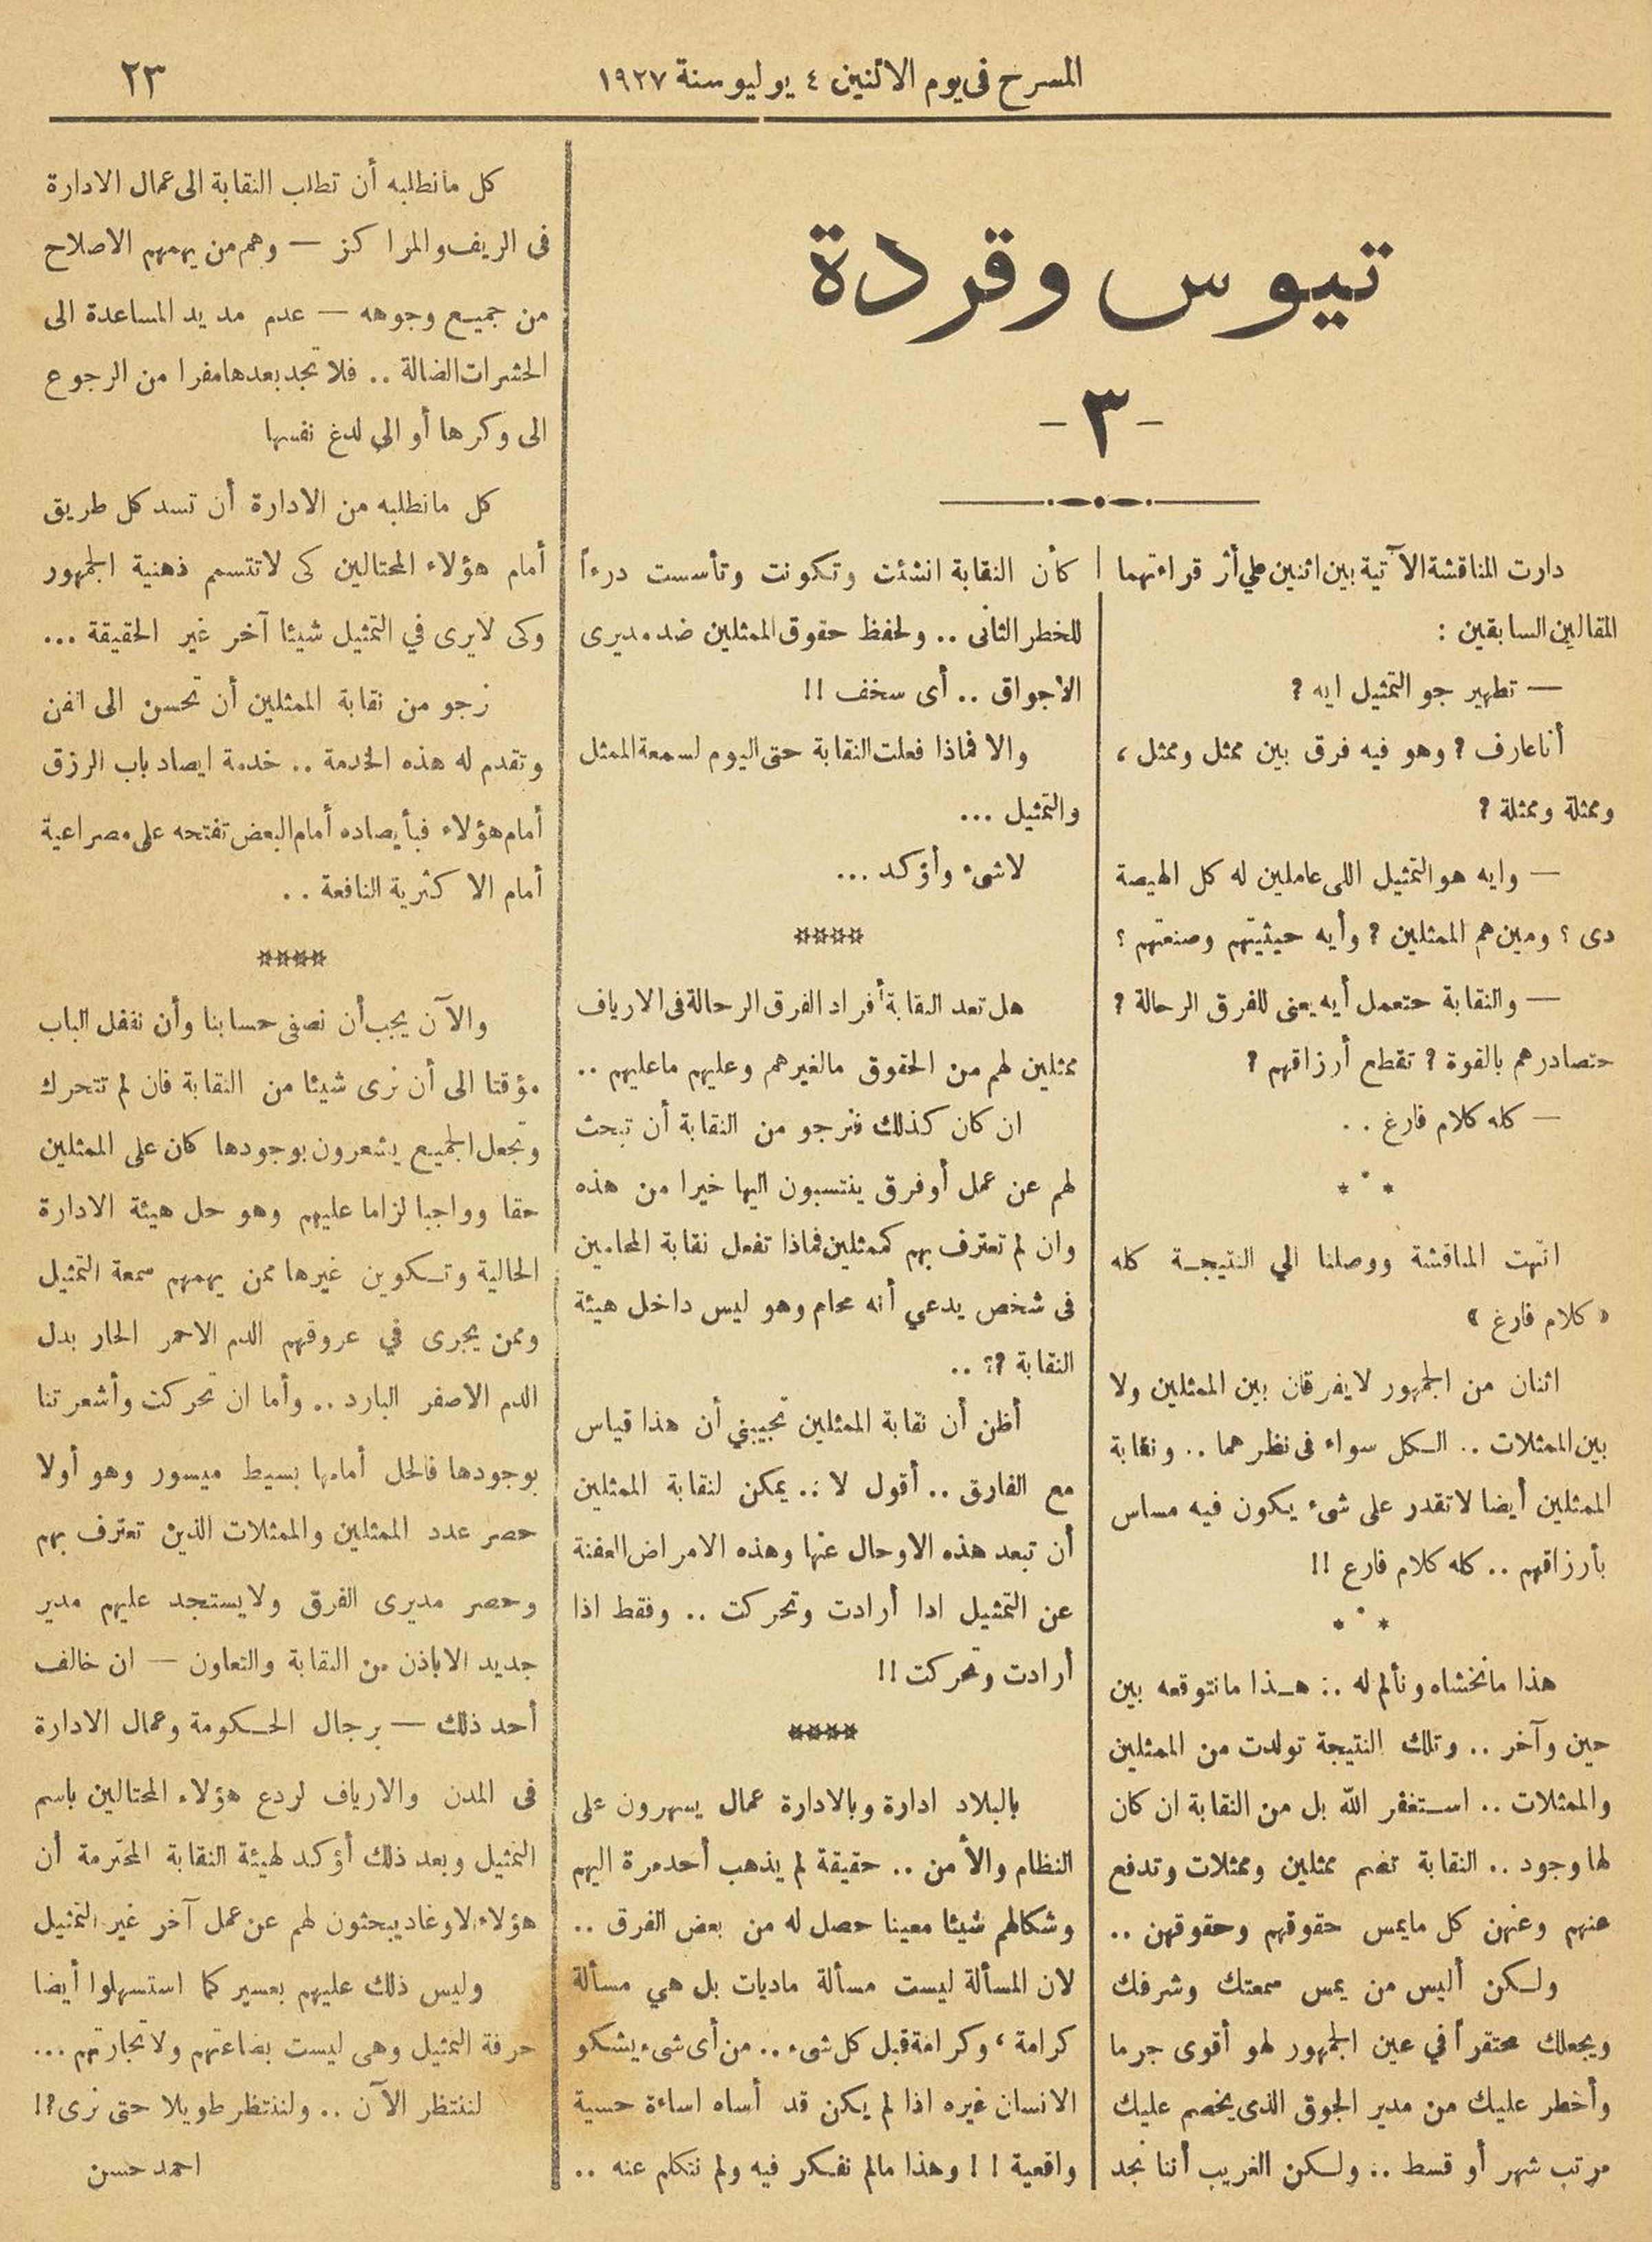 المسرح فى يوم الاثنين ٤ يوليو سنة ١٩٢٧
٢٣
تيوس وقردة
- ٣ -
دارت المناقشة الآتية بين اثنين على أثر قراءتهما
المقالين السابقين :
— تطهير جو التمثيل ايه ?
أنا عارف ? وهو فيه فرق بين ممثل وممثل ،
وممثلة وممثلة ?
— وايه هو التمثيل اللى عاملين له كل الهيصة
دى ؟ ومين هم الممثلين ? وأيه حيثيتهم وصنعتهم ؟
— والنقابة حتعمل أيه يعنى للفرق الرحالة ?
حتصادرهم بالقوة ? تقطع أرزاقهم ?
— كله كلام فارغ . .
* * *
انتهت المناقشة ووصلنا الي النتيجـة كله
« كلام فارغ »
اثنان من الجمهور لا يفرقان بين الممثلين ولا
بين الممثلات .. الـكل سواء فى نظرهما .. ونقابة
الممثلين أيضا لا تقدر على شىء يكون فيه مساس
بأرزاقهم .. كله كلام فارع !!
* * *
هذا ما نخشاه ونألم له .. هـذا ما نتوقعه بين
حين وآخر .. وتلك النتيجة تولدت من الممثلين
والممثلات .. اسـتغفر الله بل من النقابة ان كان
لها وجود .. النقابة تضم ممثلين وممثلات وتدفع
عنهم وعنهن كل مايمس حقوقهم وحقوقهن ..
ولـكن أليس من يمس سمعتك وشرفك
ويجعلك محتقراً في عين الجمهور لهو أقوى جرما
وأخطر عليك من مدير الجوق الذى يخصم عليك
مرتب شهر أو قسط .. ولـكن الغريب أننا نجد
كأن النقابة انشئت وتكونت وتأسست درءاً
للخطر الثانى .. ولحفظ حقوق الممثلين ضد مديرى
الاجواق .. أى سخف !!
والا فماذا فعلت النقابة حتى اليوم لسمعة الممثل
والتمثيل ...
لاشىء وأؤكد ...
****
هل تعد النقابة أفراد الفرق الرحالة فى الارياف
ممثلين لهم من الحقوق مالغيرهم وعليهم ماعليهم ..
ان كان كذلك فنرجو من النقابة أن تبحث
لهم عن عمل أوفرق ينتسبون اليها خيرا من هذه
وان لم تعترف بهم كممثلين فماذا تفعل نقابة المحامين
فى شخص يدعي أنه محام وهو ليس داخل هيئة
النقابة ?؟ ..
أظن أن نقابة الممثلين تجيبني أن هذا قياس
مع الفارق .. أقول لا .. يمكن لنقابة الممثلين
أن تبعد هذه الاوحال عنها وهذه الامراض العفنة
عن التمثيل ادا أرادت وتحركت .. وفقط اذا
أرادت وتحركت !!
****
بالبلاد ادارة وبالادارة عمال يسهرون على
النظام والأمن .. حقيقة لم يذهب أحد مرة اليهم
وشكالهم شيئا معينا حصل له من بعض الفرق ..
لان المسألة ليست مسألة ماديات بل هي مسألة
كرامة ، وكرامة قبل كل شىء .. من أى شىء يشكو
الانسان غيره اذا لم يكن قد أساه اساءة حسية
واقعية ! ! وهذا مالم نفـكر فيه ولم نتكلم عنه ..
كل مانطلبه أن تطلب النقابة الى عمال الادارة
فى الريف والمراكز — وهم من يهمهم الاصلاح
من جميـع وجوهه — عدم مد يد المساعدة الى
الحشرات الضالة .. فلا تجد بعدها مفرا من الرجوع
الى وكرها أو الي لدغ نفسها
كل مانطلبه من الادارة أن تسد كل طريق
أمام هؤلاء المحتالين كى لاتتسم ذهنية الجمهور
وكى لا يرى في التمثيل شيئا آخر غير الحقيقة ...
نرجو من نقابة الممثلين أن تحسن الى الفن
وتقدم له هذه الخدمة .. خدمة ايصاد باب الرزق
أمام هؤلاء فبأيصاده أمام البعض تفتحه على مصراعية
أمام الاكثرية النافعة . .
****
والآن يجب أن نصفى حسابنا وأن نقفل الباب
مؤقتا الى أن نرى شيئا من النقابة فان لم تتحرك
وتجعل الجميـع يشعرون بوجودها كان على الممثلين
حقا وواجبا لزاما عليهم وهو حل هيئة الادارة
الحالية وتـكوين غيرها ممن يهمهم سمعة التمثيل
وممن يجرى في عروقهم الدم الاحمر الحار بدل
الدم الاصفر البارد .. وأما ان تحركت وأشعرتنا
بوجودها فالحل أمامها بسيط ميسور وهو أولا
حصر عدد الممثلين والممثلات الذين تعترف بهم
وحصر مديرى الفرق ولا يستجد عليهم مدير
جديد الا باذن من النقابة والتعاون — ان خالف
أحد ذلك — برجال الحـكومة وعمال الادارة
فى المدن والارياف لردع هؤلاء المحتالين باسم
التمثيل وبعد ذلك أؤكد لهيئة النقابة المحترمة أن
هؤلاء الاوغاد يبحثون لهم عن عمل آخر غير التمثيل
وليس ذلك عليهم بعسير كما استسهلوا أيضا
حرفة التمثيل وهى ليست بضاعتهم ولا تجارتهم ...
لننتظر الآن .. ولننتظر طويلا حتى نرى ?!
احمد حسن